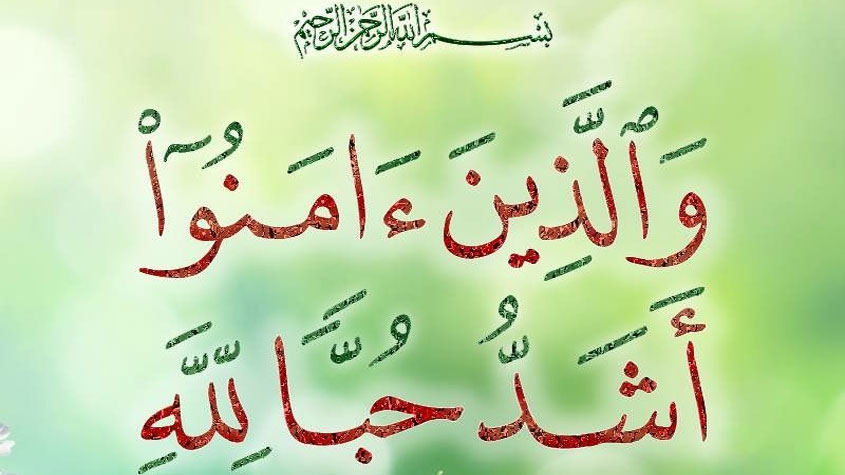 بسم الله الرحمن الرحيم
وَٱلَّذِينَ ءَامَنُوٓا۟
أَشَدُّ حُبًّا لِّلَّهِ